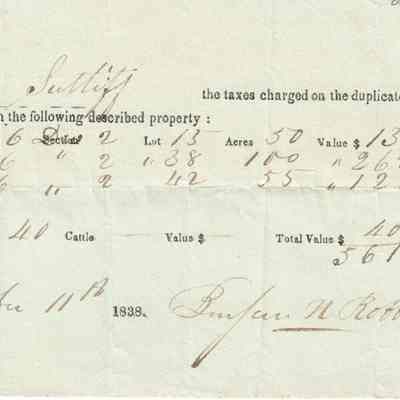 Sutliff the taxes charged on the duplicate
n the following described property :
6 Section 2 Lot 15 Acres 50 Value $ 13
6 " 2 " 38 100 " 26
6 " 2 42 55 " 12
40 Cattle Value $ Total Value $ 40
561
11th 1838.